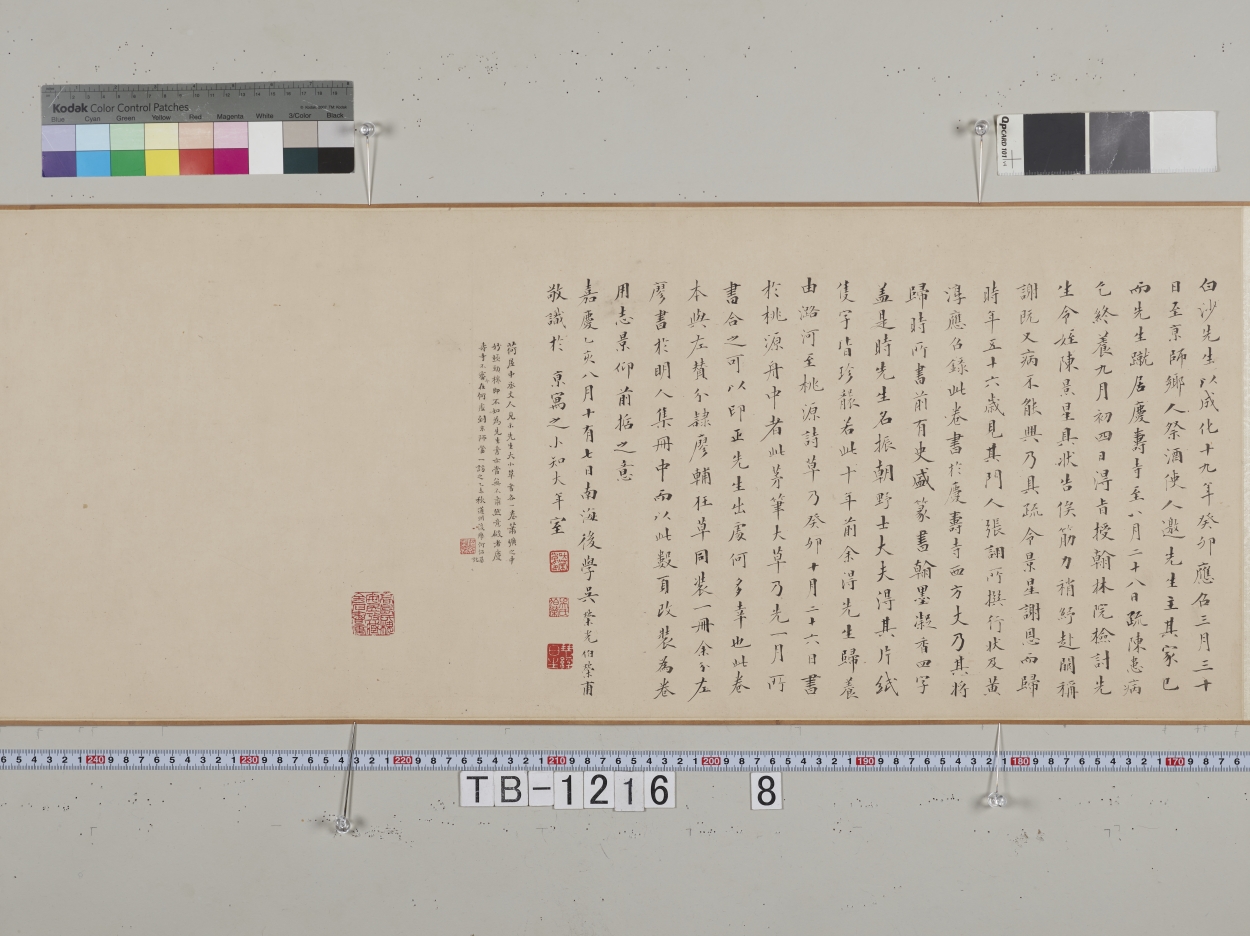 Kodak Color Control Patches
Blue Cyan Green Yellow Red Magenta White 3/Color Black
QPCARD 101
白沙先生以成化十九年癸卯應召三月三十
日至京師鄉人祭酒使人邀先生主其家已
而先生蹴居慶壽寺至八月二十八日疏陳患病
乞終養九月初四日得旨授翰林院檢討先
生令姪陳景星具狀告俟筋力稍紓赴闕稱
謝既又病不能興乃具疏令景星謝恩而歸
時年五十六歲見其門人張詡所撰行狀及黃
淳應召錄此卷書於慶壽寺西方丈乃其將
歸時所書前有史盛篆書翰墨凝香四字
蓋是時先生名振朝野士大夫得其片紙
隻字皆珍襲若此十年前余得先生歸養
由潞河至桃源詩草乃癸卯十月二十六日書
於桃源舟中者此茅筆大草乃先一月所
書合之可以印正先生出處何多幸也此卷
本與左贊分隸廖輔狂草同裝一冊余分左
廖書於明人集冊中而以此數頁改裝為卷
用志景仰前哲之意
嘉慶乙亥八月十有七日南海後學吳榮光伯榮甫
敬識於京寓之小知大年室
TB-1216 8